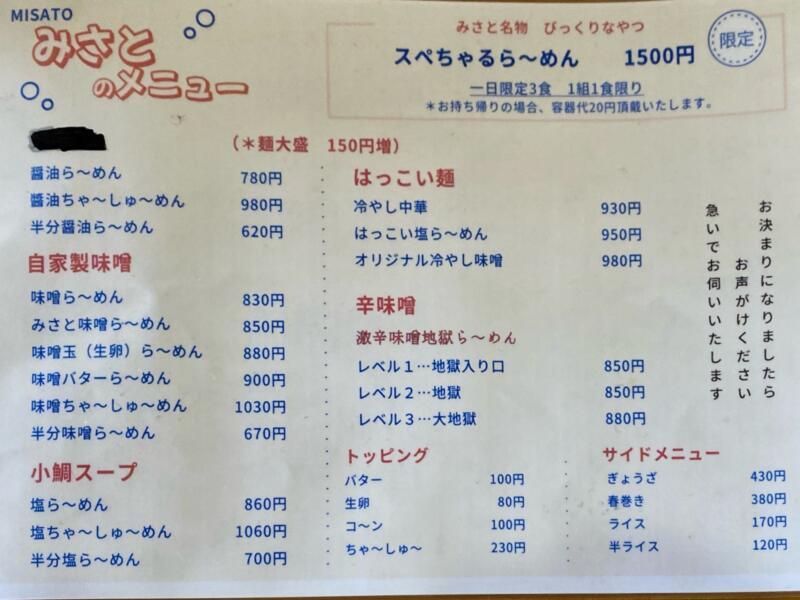 MISATO
みさと
のメニュー
みさと名物 びっくりなやつ
スペちゃるら〜めん 1500円
限定
一日限定3食 1組1食限り
＊お持ち帰りの場合、容器代20円頂戴いたします。
（＊麺大盛 150円増）
醤油ら〜めん 780円
醬油ちゃ〜しゅ〜めん 980円
半分醤油ら〜めん 620円
自家製味噌
味噌ら〜めん 830円
みさと味噌ら〜めん 850円
味噌玉（生卵）ら〜めん 880円
味噌バターら〜めん 900円
味噌ちゃ〜しゅ〜めん 1030円
半分味噌ら〜めん 670円
小鯛スープ
塩ら〜めん 860円
塩ちゃ〜しゅ〜めん 1060円
半分塩ら〜めん 700円
はっこい麺
冷やし中華 930円
はっこい塩ら〜めん 950円
オリジナル冷やし味噌 980円
辛味噌
激辛味噌地獄ら〜めん
レベル１…地獄入り口 850円
レベル２…地獄 850円
レベル３…大地獄 880円
トッピング
バター 100円
生卵 80円
コ〜ン 100円
ちゃ〜しゅ〜 230円
サイドメニュー
ぎょうざ 430円
春巻き 380円
ライス 170円
半ライス 120円
お決まりになりましたら
お声がけください
急いでお伺いいたします